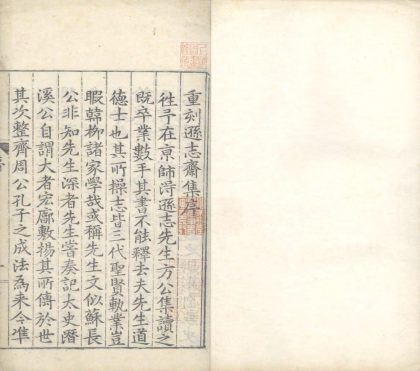 重刻遜志齋集序
徃予在京師得遜志先生方公集讀之
既卒業數手其書不能釋去夫先生道
德士也其所操志皆三代聖賢軌業豈
暇韓柳諸家學哉或稱先生文似蘇長
公非知先生深者先生嘗奏記太史潛
溪公自謂大者宏廓敷揚其所儔於世
其次整齊周公孔子之成法為來今準